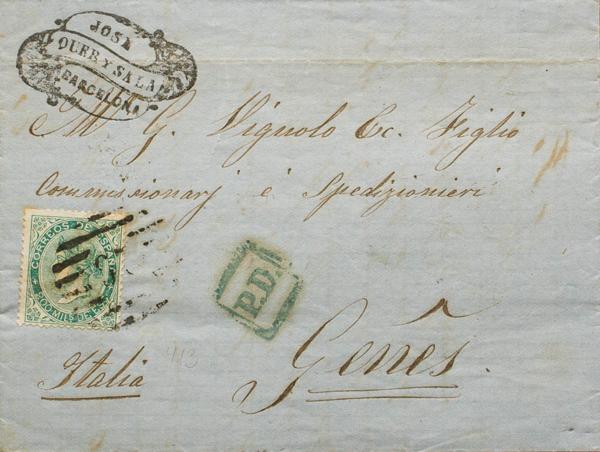 JOSÉ
DURE Y SALA
BARCELONA
M G. Vignolo Ec. Figlio
Commissionarj é Spedizionieri
CORREOS DE ESPAÑA
200 MILS. DE ESC
P.D.
Genês.
Italia
113